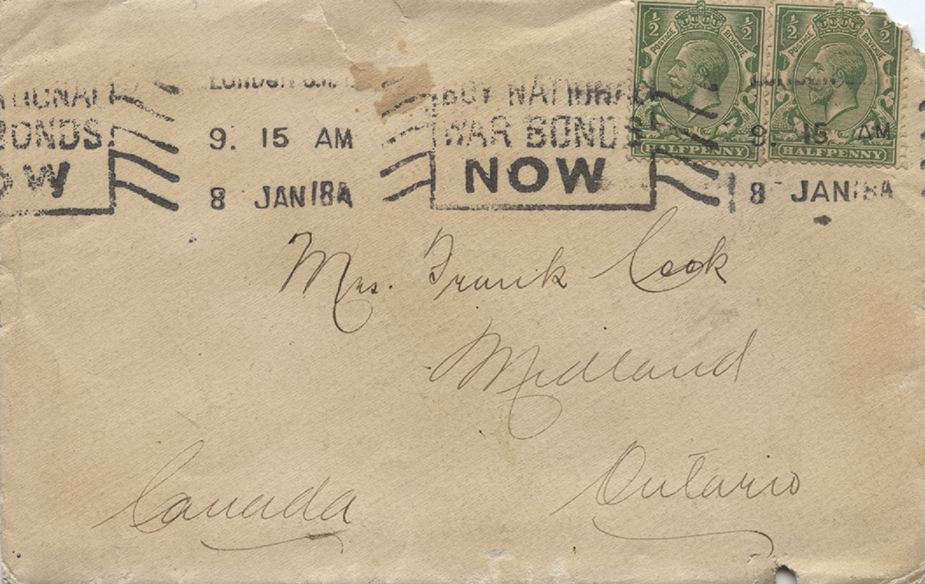 LONDON
BUY NATIONAL
WAR BONDS
NOW
9. 15 AM
8 JAN 18A
NATIONAL
BONDS
9. 15 AM
8 JAN 18A
½ ½
POSTAGE REVENUE
HALFPENNY
½ ½
POSTAGE REVENUE
HALFPENNY
Mrs. Frank Cook
Midland
Ontario
Canada